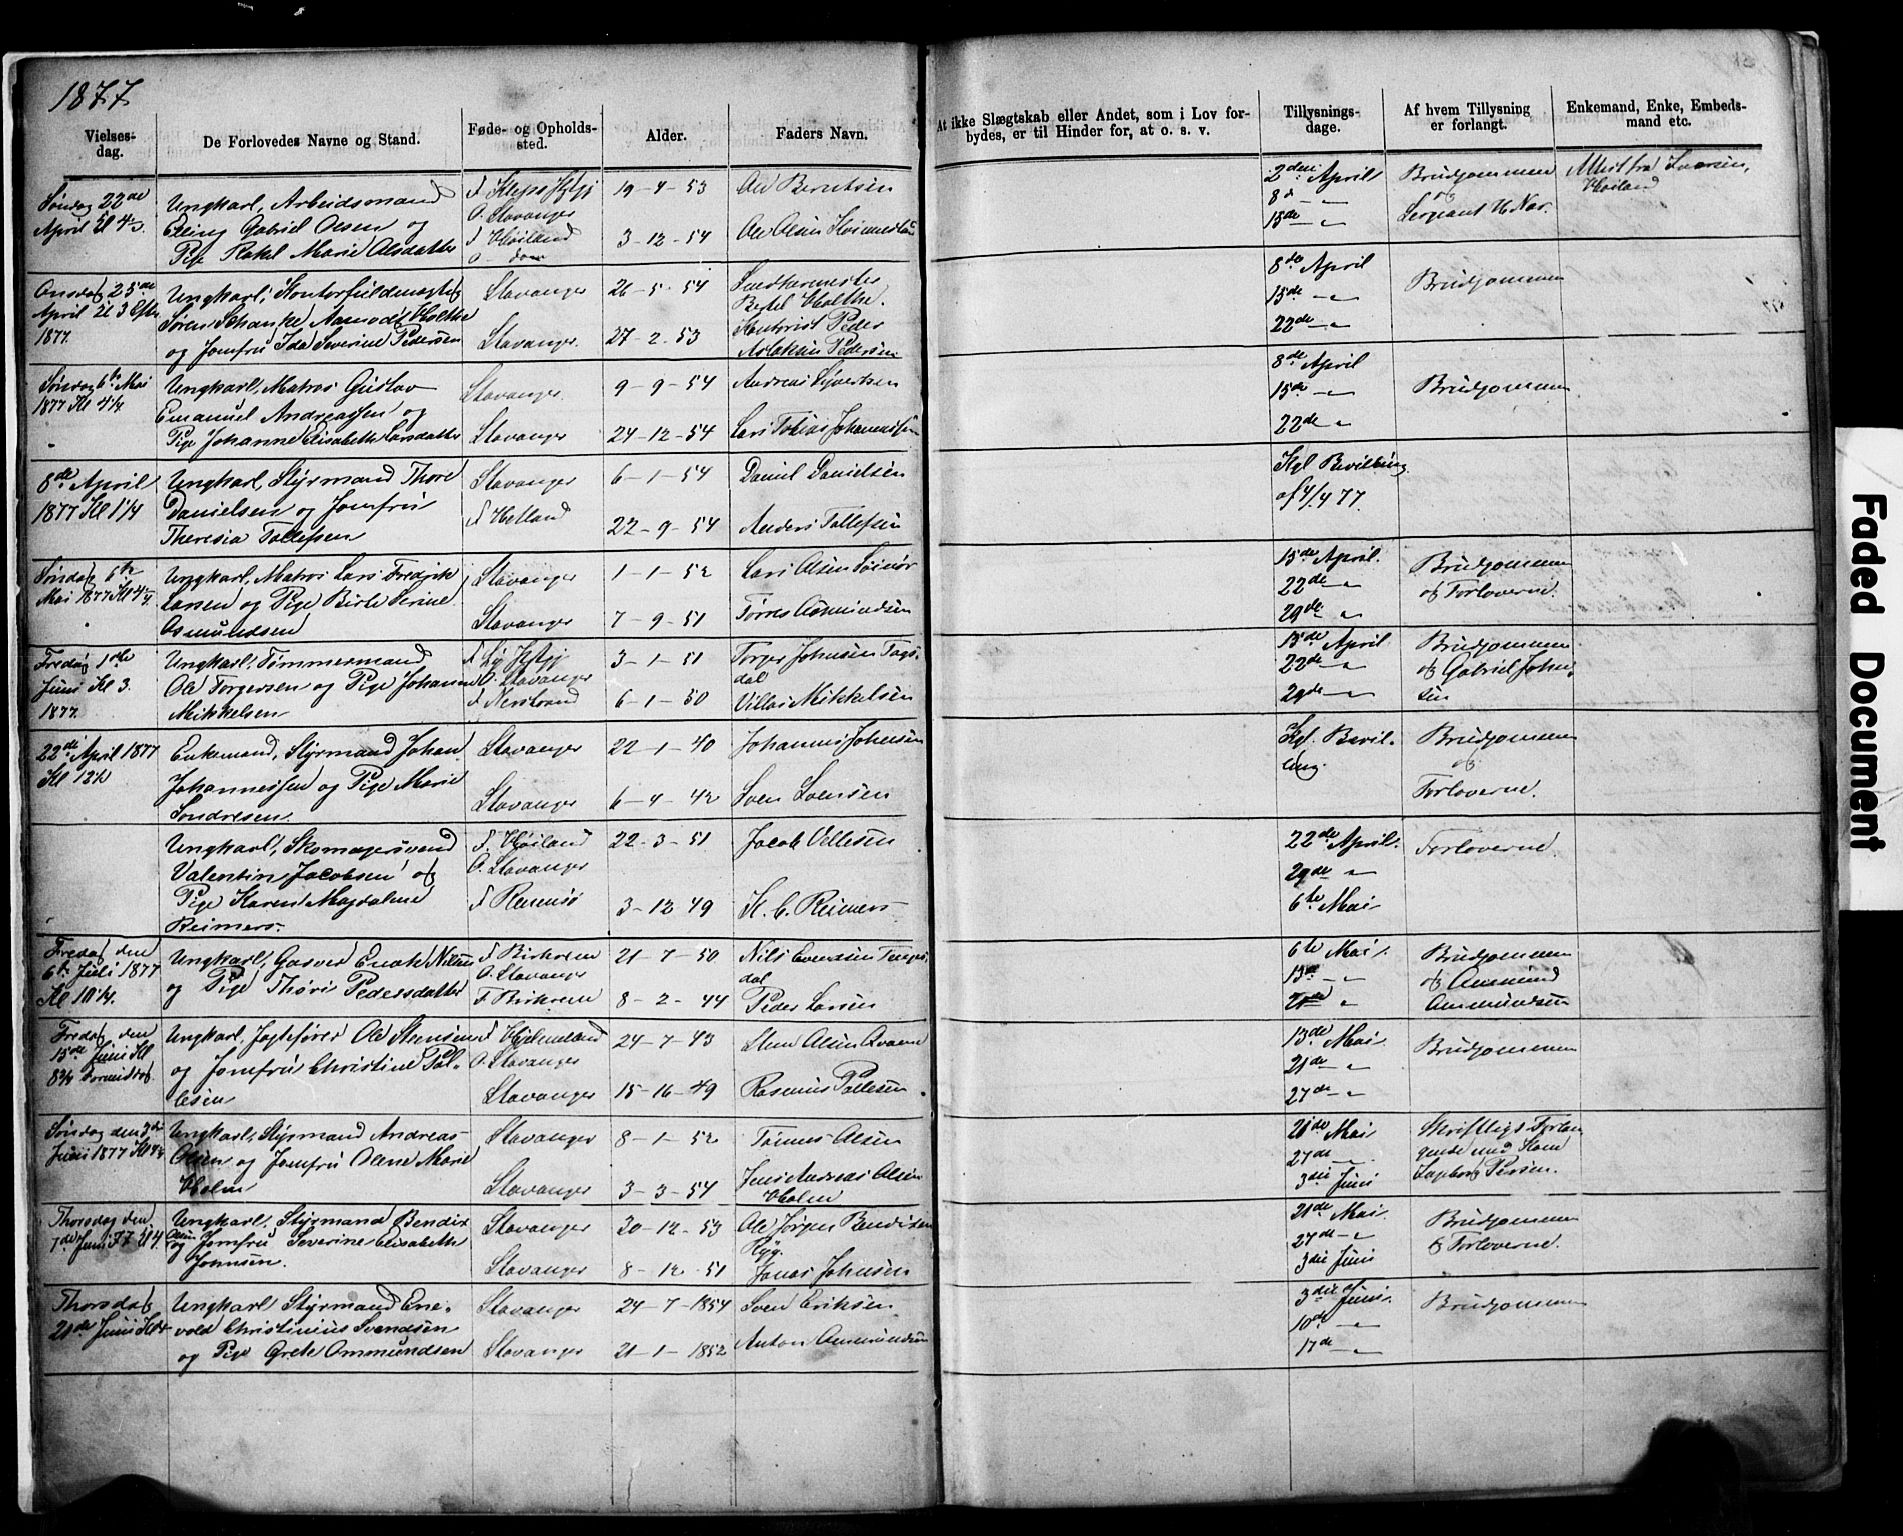 1877.
Vielses-
dag.
De Forlovedes Navne og Stand.
Føde- og Opholds-
sted.
Alder.
Faders Navn.
At ikke Slægtskab eller Andet, som i Lov for-
bydes, er til Hinder for, at o. s. v.
Tillysnings-
dage.
Af hvem Tillysning
er forlangt.
Enkemand, Enke, Embeds-
mand etc.
Søndag 22de
April Kl 4
Ungkarl, Arbeidsmand
Eling Gabriel Olsen og
Pige Rakel Marie Olsdatter
f Klepps
O. Stavanger
f Høiland
19-4-53
3-12-54
Ole Berntsen
Ole Olsen
2den April
8d - "
15de - "
Brudgommen
og
Sergeant
Attest fra
Høiland
Onsdag 25de
April Kl 3 Eftm
1877.
Ungkarl, Kontorfuldmægtig
Søren Schanke Aamodt Holthe
og Jomfru Ida Severine Pedersen
Stavanger
Stavanger
26-5-54
27-2-53
Betel Holthe.
Kontorist Peder
Aslaksen Pedersen
8de April
15de - "
22de - "
Brudgommen
Søndag 6te Mai
1877 Kl 4¼
Ungkarl, Matros Gustav
Emanuel Andreassen og
Pige Johanne Elisabeth Larsdatter
Stavanger
Stavanger
9-9-54
24-12-54
Andreas Syvertsen
Lars Tobias Johannessen
8de April
15de - "
22de "
Brudgommen
8de April
1877 Kl 1¼
Ungkarl, Styrmand Thore
Danielsen og Jomfru
Theresia Tollefsen
Stavanger
f Hetland
6-1-54
22-9-54
Daniel Danielsen
Anders Tollefsen
Kgl Bevilling
af 4/4 77.
Søndag 6te
Mai 1877 Kl 4¼
Ungkarl, Matros Lars Fredrik
Larsen og Pige Birte Serine
Osmundsen
Stavanger
Stavanger
1-1-52
7-9-51
Lars Olsen
Tørres Osmundsen
15de April.
22de - "
29de "
Brudgommen
og Forloverne.
Fredag 1ste
Juni Kl 3.
1877.
Ungkarl, Tømmermand
Ole Torgersen og Pige Johanne
Mikkelsen
O. Stavanger
f Nerstrand
3-1-51
6-1-50
Torger Johnsen Tags-
dal
Villas Mikkelsen
15de April
22de - "
29de - "
Brudgommen
og Gabriel John-
sen
22de April 1877
Kl 12½
Enkemand, Styrmand Johan
Johannessen og Pige Marie
Sondresen.
Stavanger
Stavanger
22-1-40
6-4-42
Johannes Johnsen
Sven Svensen
Kgl. Bevil-
ling.
Brudgommen
og
Forloverne.
Ungkarl, Skomagersvend
Valentin Jacobsen og
Pige Karen Magdalene
Reimers.
f. Høiland
O. Stavanger
f Rennesø
22-3-51
3-12 49
Jacob Vellesen
H. C. Reimers
22de April.
29de "
6te Mai
Forloverne.
Fredag den
6te Juli 1877
Kl 10¼.
Ungkarl, Gasver Enok Nilsen
og Pige Thori Pedersdatter
f Birkrem
O. Stavanger
f Birkrem
21-7-50
8-2-44
Nils Evensen Tengs-
dal
Peder Larsen
6te Mai.
13de - "
21de "
Brudgommen
og Aamund
Aanmundsen
Fredag den
15de Juni Kl
8¾ Formiddag
Ungkarl, Jagtefører Ole Stensen
og Jomfru Christine Tol-
lesen
f Hjelmeland
O. Stavanger
Stavanger
24-7-43
15-16-49
Sten Olsen
Rasmus Tollesen
13de Mai.
21de - "
27de - "
Brudgommen
Søndag den 3die
Juni 1877 Kl 4¼
Ungkarl, Styrmand Andreas
Olsen og Jomfru Olene Marie
Holm
Stavanger
Stavanger
8-1-52
3-3-54
Tønnes Olsen
Jens Andreas Olsen
Holm
21de Mai
27de
3die Juni
Skriftligt Forlan-
gende med
Ingeborg
Thorsdag den
7de Juni 77 Kl 4.
Ungkarl, Styrmand Bendix
Olsen
og Jomfru Severine Elisabeth
Johnsen.
Stavanger
Stavanger
30-12-53
8-12-51
Ole Jørgen Bendixen
Jonas Johnsen
21de Mai.
27de - "
3die Juni
Brudgommen
og Forloverne.
Thorsdag
21de Juni Kl 4
Ungkarl, Styrmand Ene-
vold Christinius Svendsen
og Pige Grete Ommundsen
Stavanger
Stavanger
24-7-1854
21-1-1852
Sven Eriksen
Anton Ommundsen
3die Juni.
10de - "
17de - "
Brudgommen
Faded Document